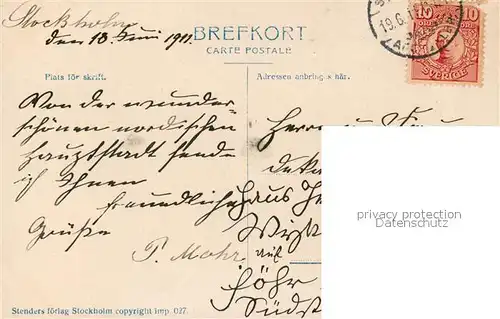 Stockholm
den 18. Juni 1911.
BREFKORT
CARTE POSTALE
10 10
SVERIGE
Plats för skrift.
Adressen anbringas här.
Von der wunder-
schönen nordischen
Hauptstadt sende
ich Ihnen
freundliche
Grüße
P. Mohr
Herrn u. Frau
Haus
Wyk
auf
Föhr
Südst
privacy protection
Datenschutz
Stenders förlag Stockholm copyright imp. 027.